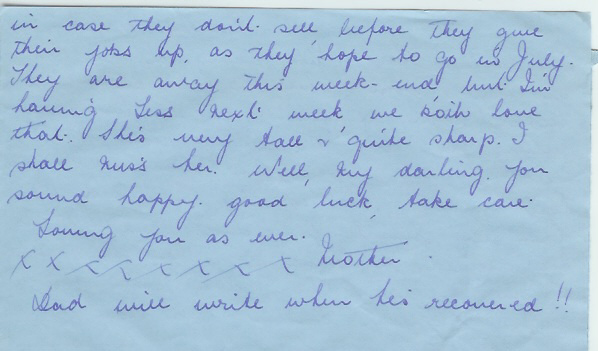 in case they don't sell before they give
their jobs up, as they hope to go in July.
They are away this week-end but I'm
having Tess next week we both love
that. She's very tall & quite sharp. I
shall miss her. Well, my darling, you
sound happy. good luck, take care.
Loving you as ever.
x x x x x x x x Mother.
Dad will write when he's recovered!!